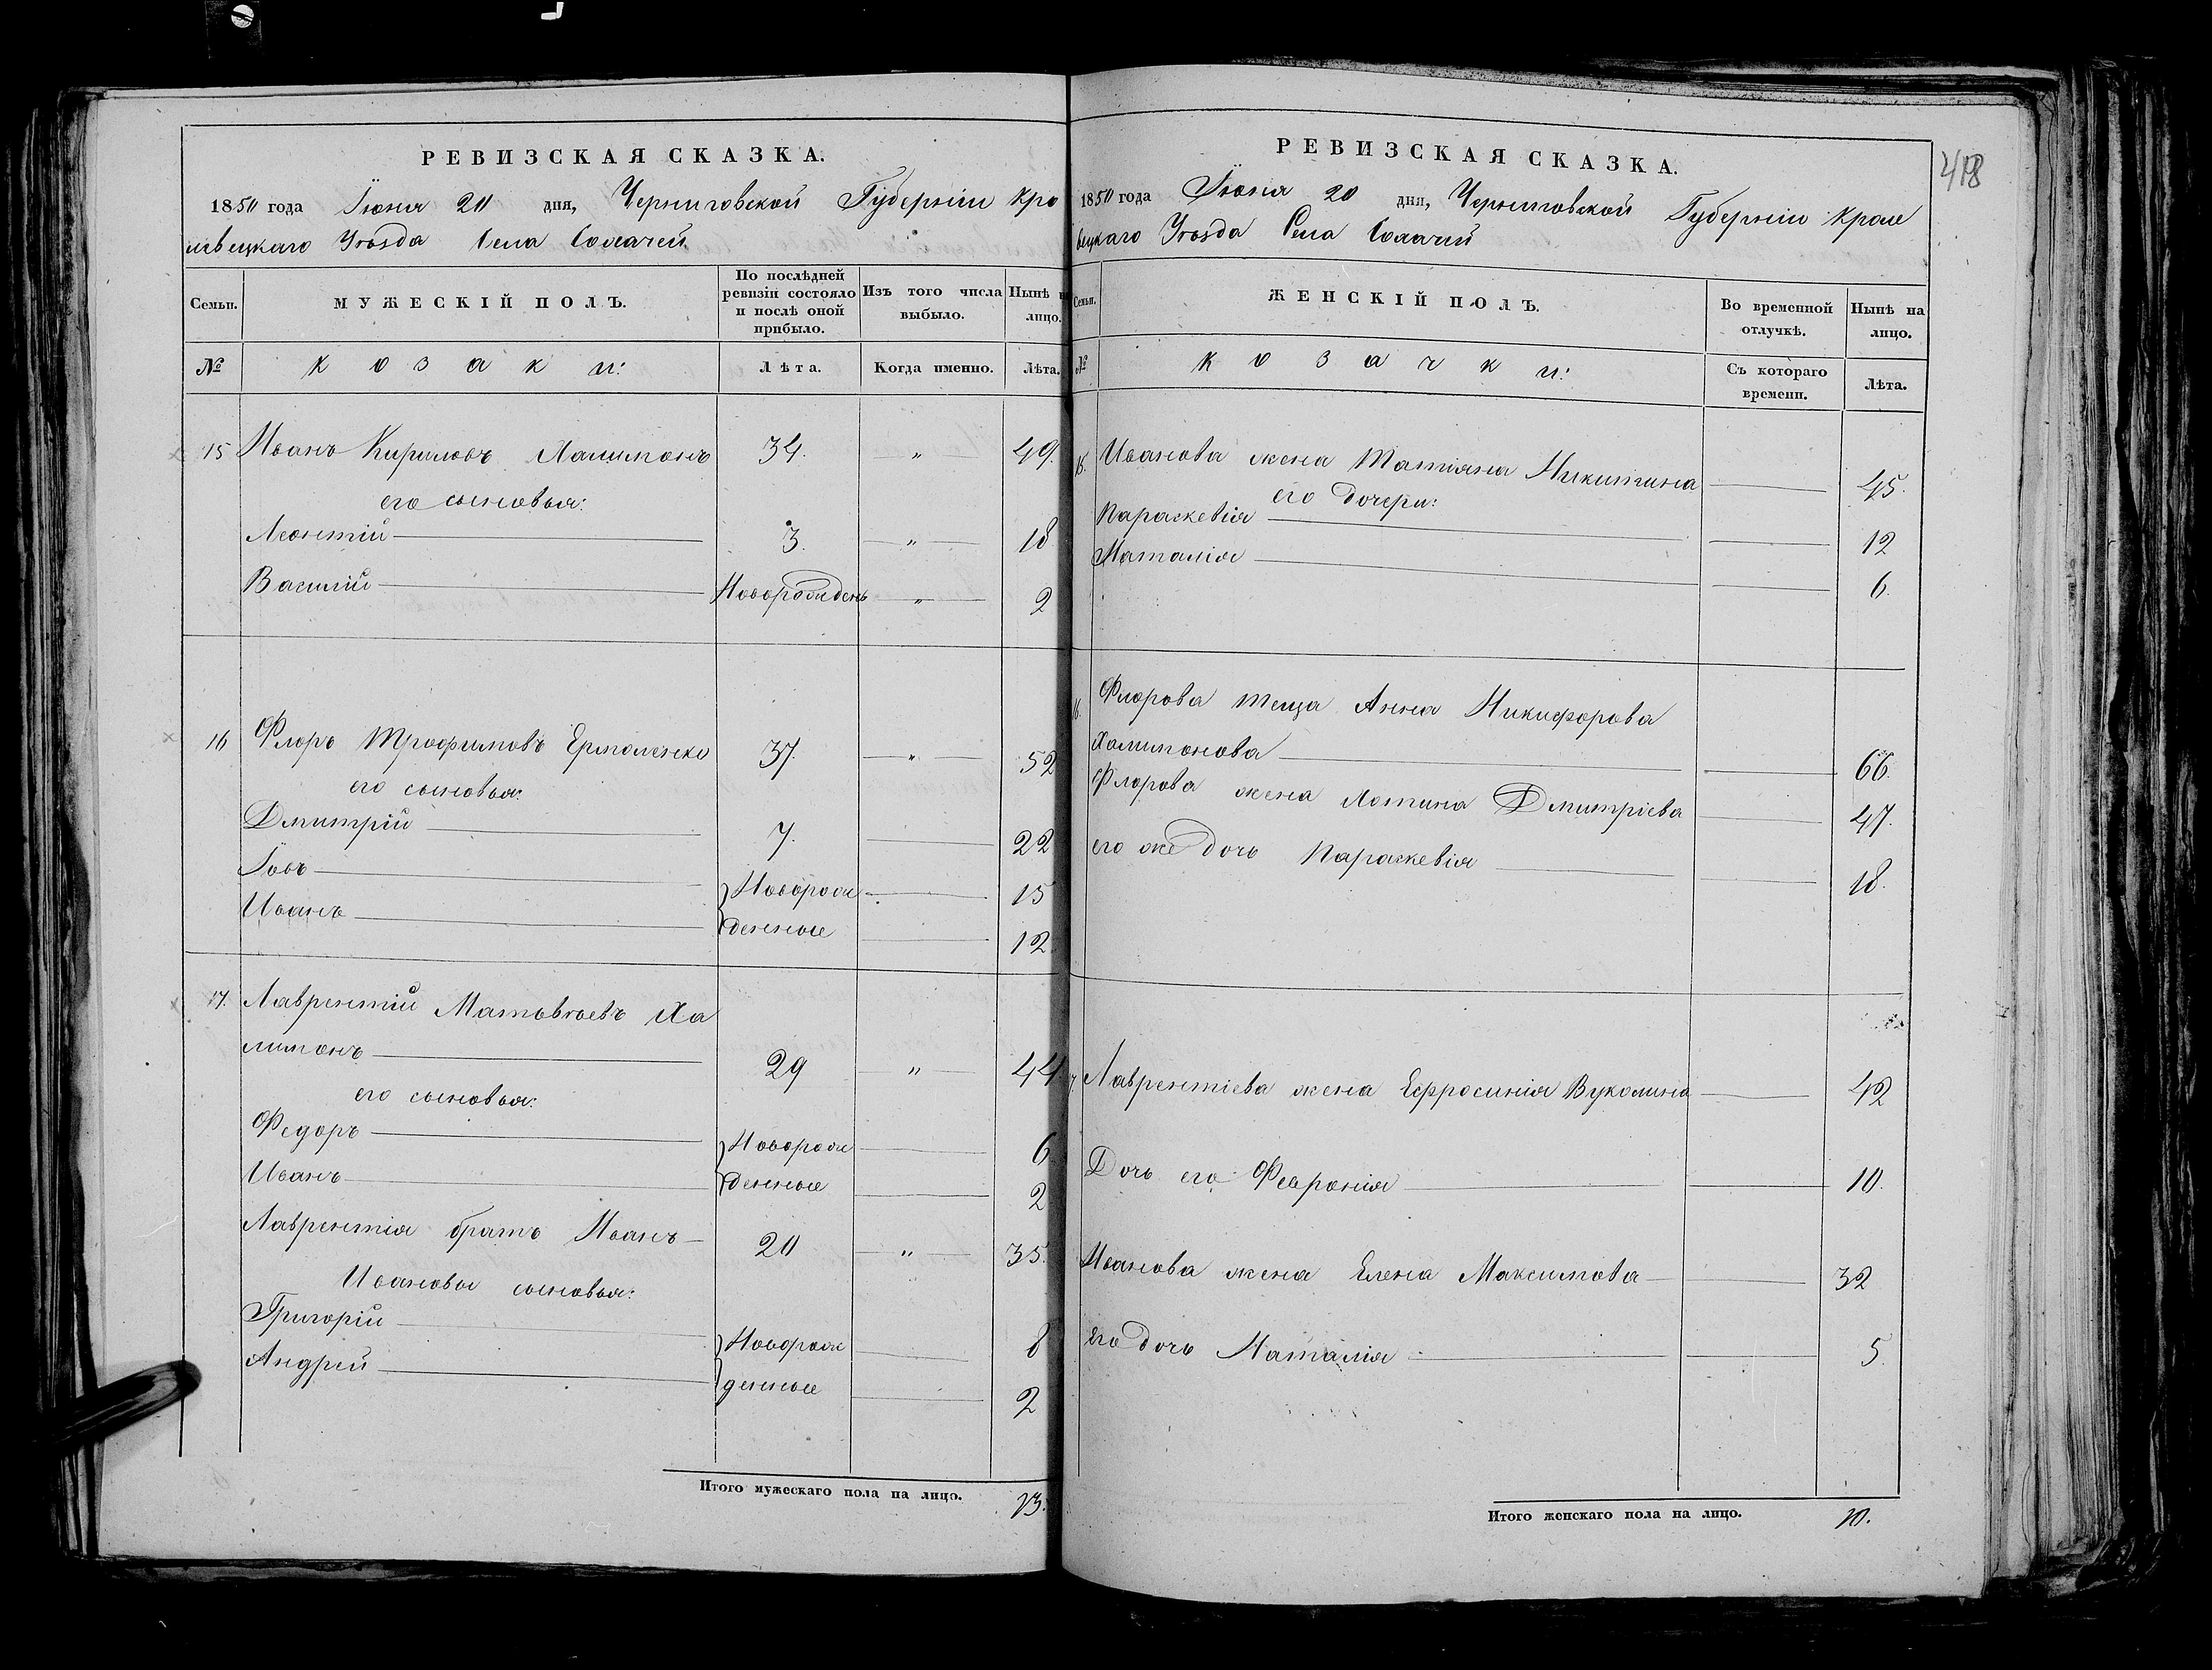 РЕВИЗСКАЯ СКАЗКА.
1850 года Іюня 20 дня, Черниговской Губерніи Кро
левецкаго Уѣзда Села Собичей
Семьи.
МУЖЕСКІЙ ПОЛЪ.
По послѣдней ревизіи состояло и послѣ оной прибыло.
Изъ того числа выбыло.
Нынѣ на лицо.
№
Козаки:
Лѣта.
Когда именно.
Лѣта.
15 Иванъ Кириловъ Халимонъ 34. " 49.
его сыновья:
Леонтій 3. " 18
Василій Новорожденъ " 2
16 Флоръ Трофимовъ Ермоленко 37. " 52
его сыновья:
Дмитрій 7. 22
Іовъ Новорож 15
Иванъ денные 12
17. Лаврентій Матвѣевъ Ха
лимонъ 29 " 44.
его сыновья:
Федоръ Новорож 6
Иванъ денные 2
Лаврентія братъ Иванъ 20 " 35.
Ивановы сыновья:
Григорій Новорож 8
Андрей денные 2
Итого мужескаго пола на лицо. 13.
418
РЕВИЗСКАЯ СКАЗКА.
1850 года Іюня 20 дня, Черниговской Губерніи Кроле
вецкаго Уѣзда Села Собичей
Семьи.
ЖЕНСКІЙ ПОЛЪ.
Во временной отлучкѣ.
Нынѣ на лицо.
№
Козачки:
Съ котораго времени.
Лѣта.
15. Иванова жена Татіяна Никитина 45.
его дочери:
Параскевія 12
Наталія 6.
16. Флорова теща Анна Никифорова
Халимонова 66.
Флорова жена Хотина Дмитріева 47.
его же дочь Параскевія 18.
17 Лаврентіева жена Ефросинія Вуколина 42
Дочь его Февронія 10.
Иванова жена Елена Максимова 32
Его дочь Наталія 5.
Итого женскаго пола на лицо. 10.